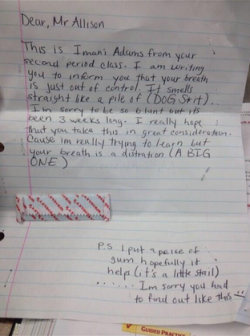 Dear, Mr Allison
This is Imani Adams from your
second period class. I am writing
you to inform you that your breath
is just out of control. It smells
straight like a pile of (DOG Shit).
I'm sorry to be so blunt but its
been 3 weeks long. I really hope
that you take this in great consideration.
Cause im really trying to learn but
your breath is a distration (A BIG
ONE)
P.S I put a peice of
gum hopefully it
help (it's a little stail)
...... Im sorry you had
to find out like this
GUIDED PRACTICE